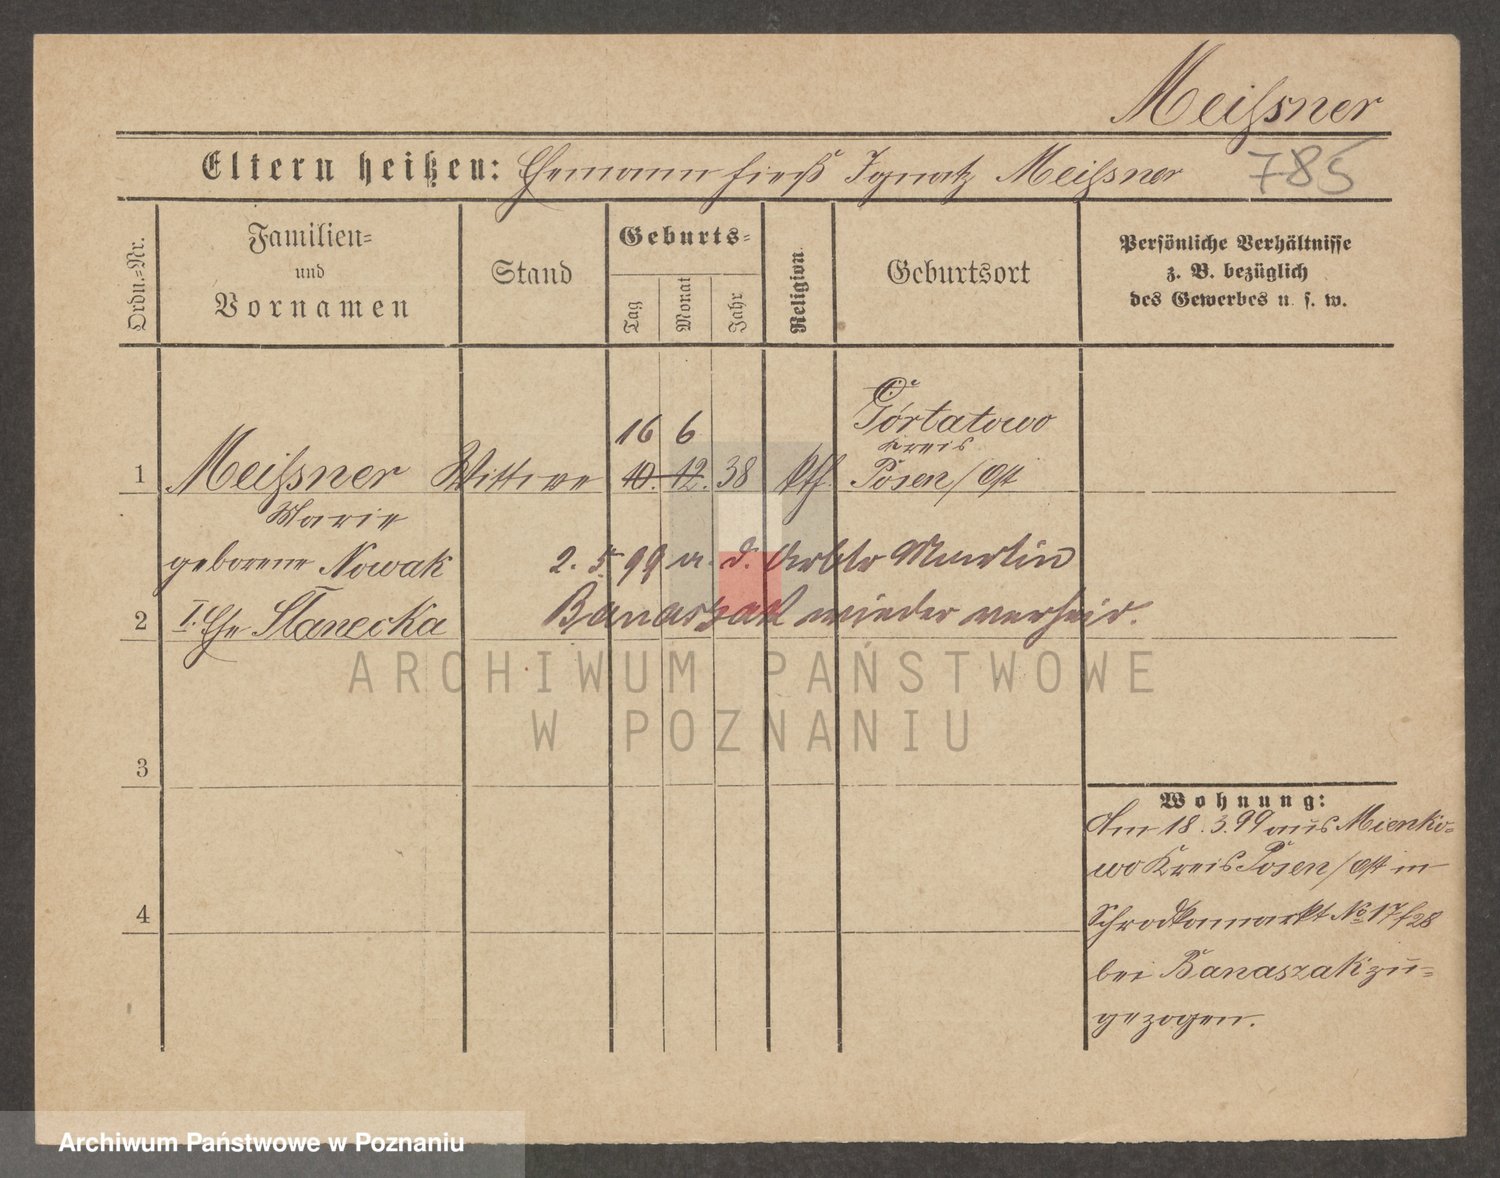 Meißner
Eltern heißen: Ehemann hieß Ignatz Meißner
785
Ordn.-Nr.
Familien-
und
Vornamen
Stand
Geburts-
Tag
Monat
Jahr
Religion
Geburtsort
Persönliche Verhältnisse
z. B. bezüglich
des Gewerbes u. s. w.
Górtatowo
16 6
Kreis
1 Meißner Wittwe 10. 12. 38 kth. Posen/Ost
Marie
geborene Nowak
2. 5. 99 a. d. Arbtr Martin
2 I. Ehe Stanecka
Banaszak wieder verheir.
3
Wohnung:
Am 18. 3. 99 aus Mienko-
wo Kreis Posen/Ost in
4
Schrodkamarkt No 17/28
bei Banaszak zu-
gezogen.
ARCHIWUM PAŃSTWOWE
W POZNANIU
Archiwum Państwowe w Poznaniu